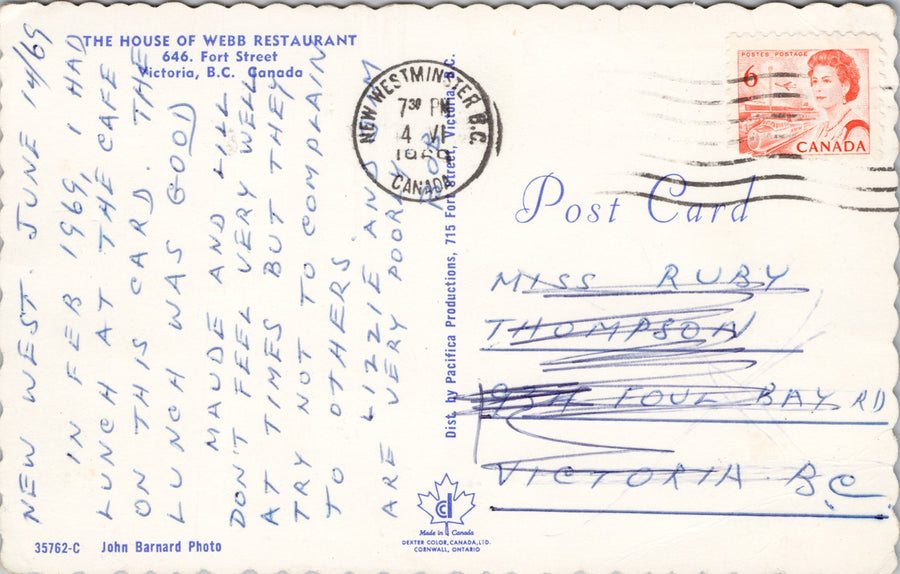 THE HOUSE OF WEBB RESTAURANT
646. Fort Street
Victoria, B.C. Canada
NEW WEST. JUNE 14/69
IN FEB 1969, I HAD
LUNCH AT THE CAFE
ON THIS CARD. THE
LUNCH WAS GOOD
MAUDE AND I
DON'T FEEL VERY WELL
AT TIMES BUT THEY
TRY NOT TO COMPLAIN
TO OTHERS.
LIZZIE AND
ARE VERY POORLY
Dist. by Pacifica Productions, 715 Fort Street, Victoria, B.C.
NEW WESTMINSTER B.C.
7 30 PM
VI
CANADA
POSTES POSTAGE
6
CANADA
Post Card
MISS RUBY
THOMPSON
FOUL BAY RD
VICTORIA BC
Made in Canada
DEXTER COLOR, CANADA, LTD.
CORNWALL, ONTARIO
35762-C John Barnard Photo